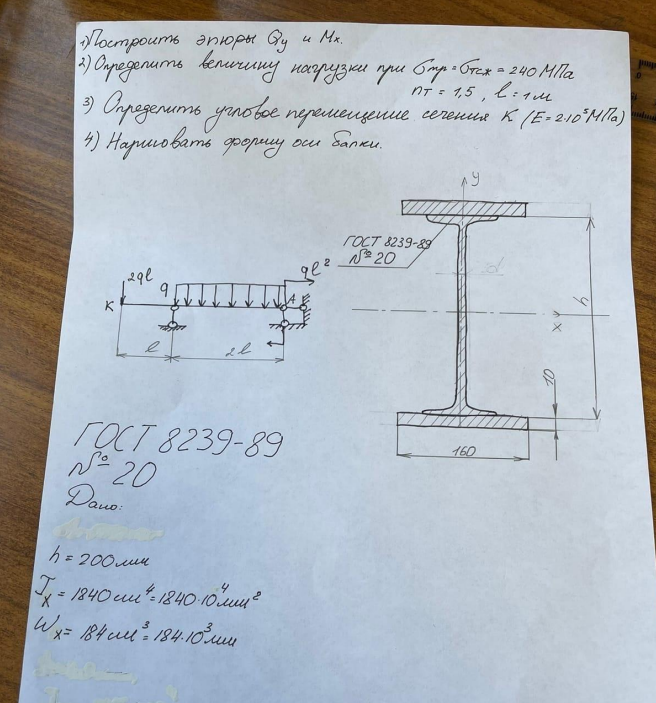 1) Построить эпюры Qy и Mx.
2) Определить величину нагрузки при σтр = σтсж = 240 МПа
nт = 1,5 , l = 1 м
3) Определить угловое перемещение сечения K (E = 2·10⁵ МПа)
4) Нарисовать форму оси балки.
y
ГОСТ 8239-89
№ 20
h
x
10
160
2ql
q
ql²
K
A
l
2l
ГОСТ 8239-89
№ 20
Дано:
h = 200 мм
Jx = 1840 см⁴ = 1840·10⁴ мм²
Wx = 184 см³ = 184·10³ мм